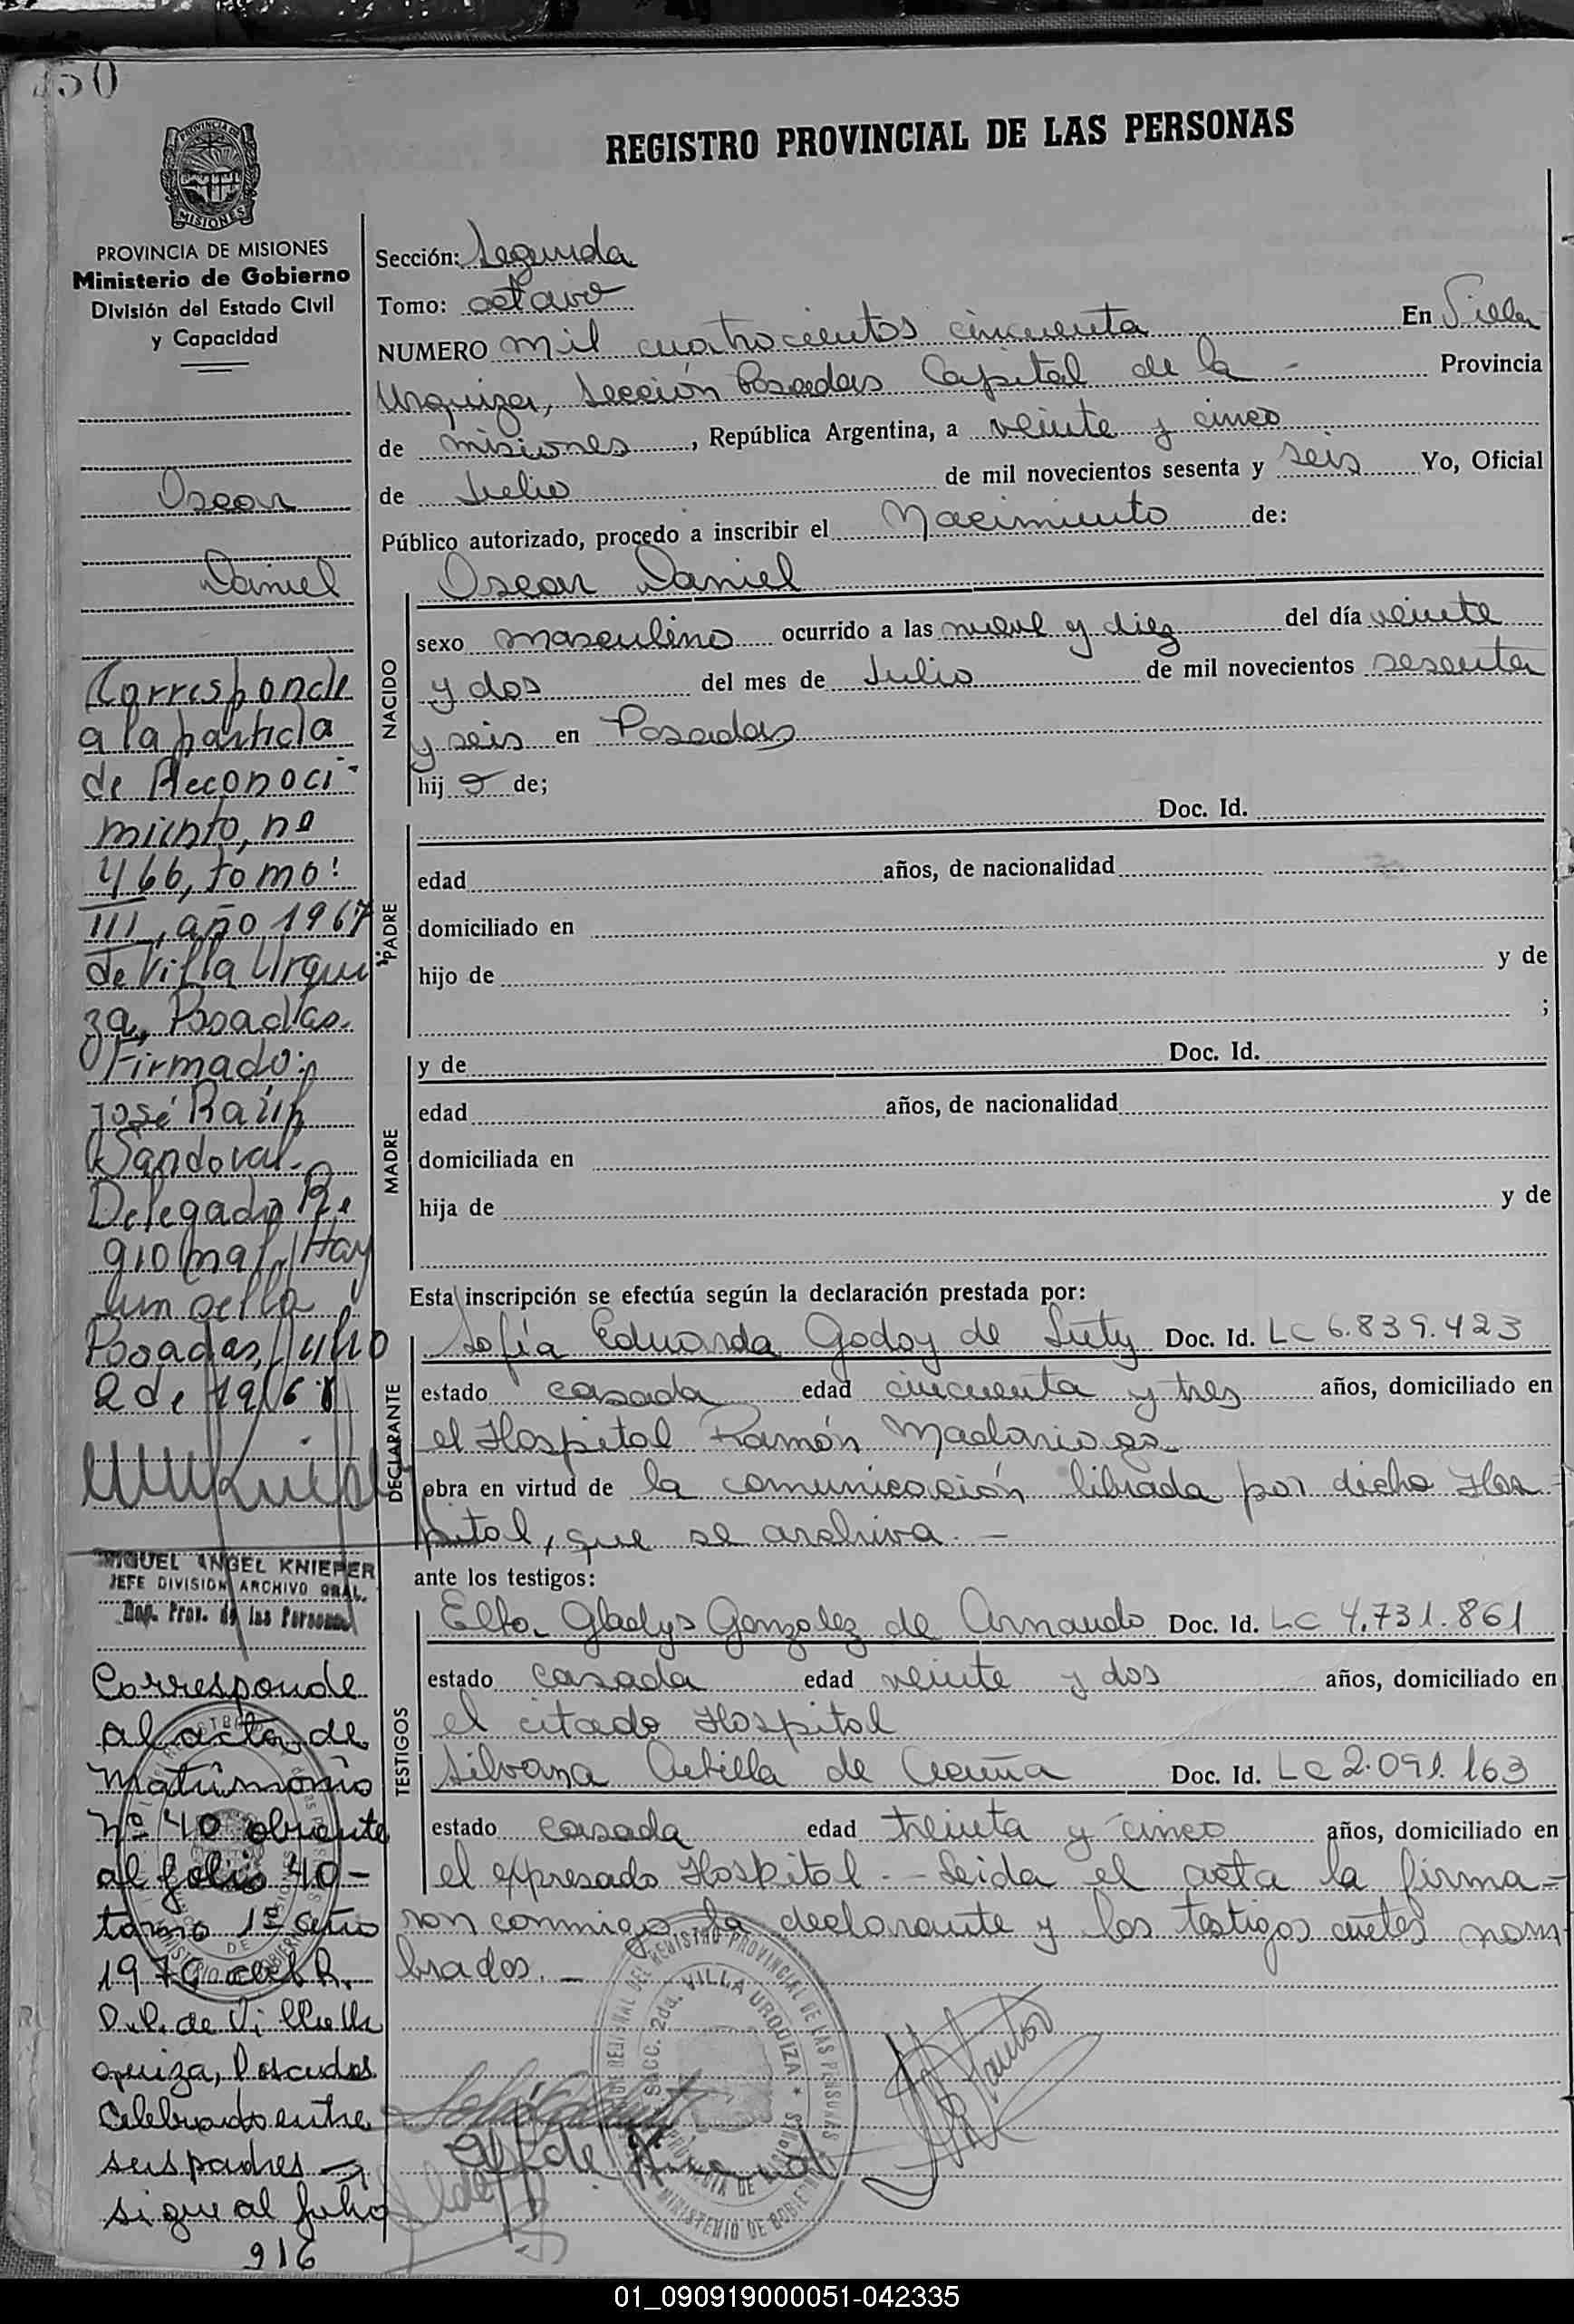 450
PROVINCIA DE
MISIONES
PROVINCIA DE MISIONES
Ministerio de Gobierno
División del Estado Civil
y Capacidad
Oscar
Daniel
Corresponde
a la partida
de Reconoci-
miento, nº
466, tomo:
III, año 1967
de Villa Urqui
za, Posadas.
Firmado:
José Raúl
Sandoval.
Delegado Re
gional, Hay
un sello
Posadas, Julio
2 de 1968
MIGUEL ANGEL KNIEPER
JEFE DIVISION ARCHIVO GRAL.
Reg. Prov. de las Personas
Corresponde
al acta de
Matrimonio
Nº 40 obrante
al folio 40-
tomo 1º
1970
D.P. de Vi
quiza, Posadas
Celebrado entre
sus padres
sigue al folio
916
REGISTRO PROVINCIAL DE LAS PERSONAS
Sección: Segunda
Tomo: octavo
NUMERO mil cuatrocientos cincuenta En Villa
Urquiza, Sección Posadas Capital de la - Provincia
de misiones, República Argentina, a veinte y cinco
de Julio de mil novecientos sesenta y seis Yo, Oficial
Público autorizado, procedo a inscribir el Nacimiento de:
NACIDO
Oscar Daniel
sexo masculino ocurrido a las nueve y diez del día veinte
y dos del mes de Julio de mil novecientos sesenta
y seis en Posadas
hij o de;
PADRE
Doc. Id.
edad años, de nacionalidad
domiciliado en
hijo de y de
;
MADRE
y de Doc. Id.
edad años, de nacionalidad
domiciliada en
hija de y de
Esta inscripción se efectúa según la declaración prestada por:
DECLARANTE
Sofía Eduarda Godoy de Doc. Id. LC 6.839.423
estado casada edad cincuenta y tres años, domiciliado en
el Hospital Ramón Madariaga
obra en virtud de la comunicación librada por dicho Hos-
pital, que se archiva. -
ante los testigos:
TESTIGOS
Elba Gladys Gonzalez de Doc. Id. LC 4.731.861
estado casada edad veinte y dos años, domiciliado en
el citado Hospital
Silvana de Acuña Doc. Id. LC 2.091.163
estado casada edad treinta y cinco años, domiciliado en
el expresado Hospital - Leida el acta la firma-
ron conmigo la declarante y los testigos antes nom
brados. -
SECC. 2da. VILLA URQUIZA
PROVINCIA DE MISIONES
REGISTRO PROVINCIAL DE LAS PERSONAS
MINISTERIO DE GOBIERNO
01_090919000051-042335